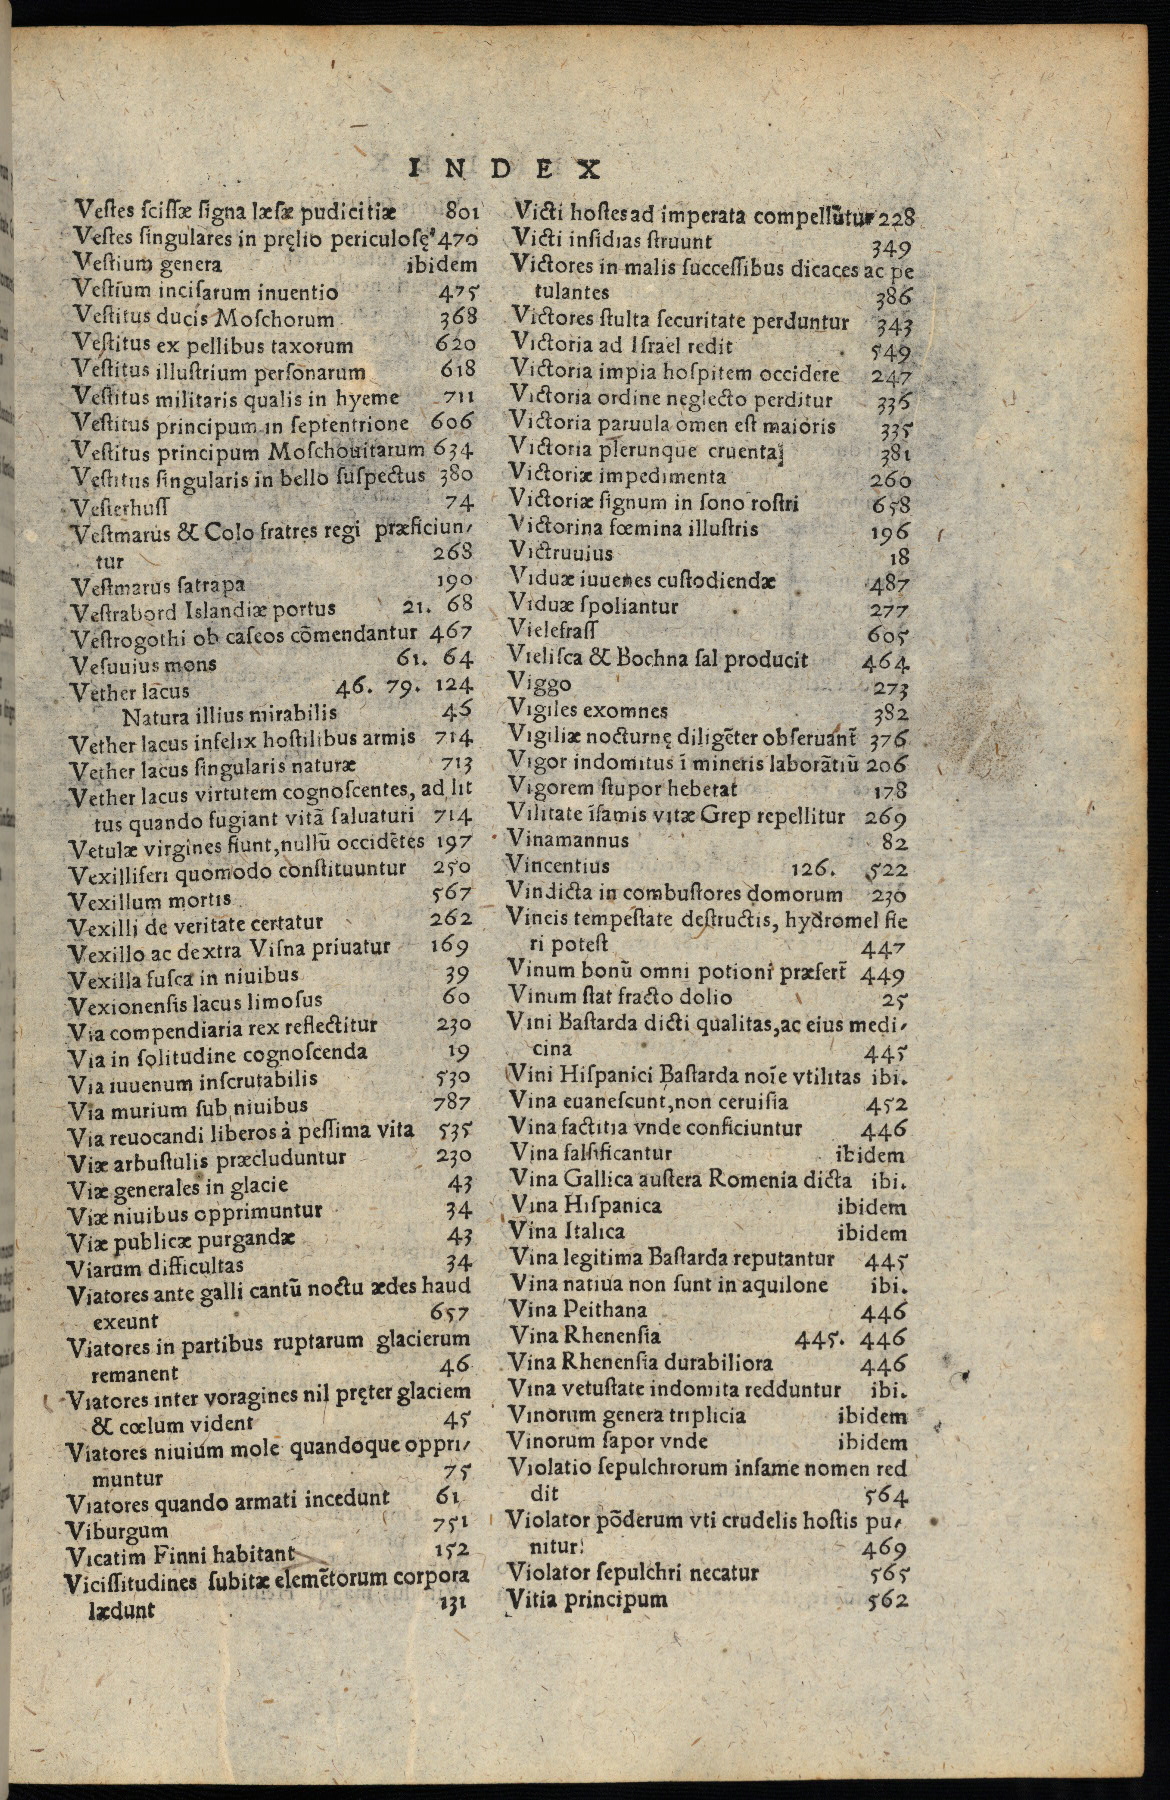 INDEX
Vestes scissæ signa læsæ pudicitiæ 801
Vestes singulares in pręlio periculosę 470
Vestium genera ibidem
Vestium incisarum inuentio 475
Vestitus ducis Moschorum 368
Vestitus ex pellibus taxorum 620
Vestitus illustrium personarum 618
Vestitus militaris qualis in hyeme 711
Vestitus principum in septentrione 606
Vestitus principum Moschouitarum 634
Vestitus singularis in bello suspectus 380
Vesterhuss 74
Vestmarus & Colo fratres regi præficiun-
tur 268
Vestmarus satrapa 190
Vestrabord Islandiæ portus 21. 68
Vestrogothi ob caseos cõmendantur 467
Vesuuius mons 61. 64
Vether lacus 46. 79. 124
Natura illius mirabilis 46
Vether lacus infelix hostilibus armis 714
Vether lacus singularis naturæ 713
Vether lacus virtutem cognoscentes, ad lit
tus quando fugiant vitã saluaturi 714
Vetulæ virgines fiunt, nullũ occidẽtes 197
Vexilliferi quomodo constituuntur 250
Vexillum mortis 567
Vexilli de veritate certatur 262
Vexillo ac dextra Visna priuatur 169
Vexilla fusca in niuibus 39
Vexionensis lacus limosus 60
Via compendiaria rex reflectitur 230
Via in solitudine cognoscenda 19
Via iuuenum inscrutabilis 530
Via murium sub niuibus 787
Via reuocandi liberos à pessima vita 535
Viæ arbustulis præcluduntur 230
Viæ generales in glacie 43
Viæ niuibus opprimuntur 34
Viæ publicæ purgandæ 43
Viarum difficultas 34
Viatores ante galli cantũ noctu ædes haud
exeunt 657
Viatores in partibus ruptarum glacierum
remanent 46
Viatores inter voragines nil pręter glaciem
& cœlum vident 45
Viatores niuium mole quandoque oppri-
muntur 75
Viatores quando armati incedunt 61
Viburgum 751
Vicatim Finni habitant 152
Vicissitudines subitæ elemẽtorum corpora
lædunt 131
Victi hostes ad imperata compellũtur 228
Victi insidias struunt 349
Victores in malis successibus dicaces ac pe
tulantes 386
Victores stulta securitate perduntur 343
Victoria ad Israel redit 549
Victoria impia hospitem occidere 247
Victoria ordine neglecto perditur 336
Victoria paruula omen est maioris 335
Victoria plerunque cruenta 381
Victoriæ impedimenta 260
Victoriæ signum in sono rostri 658
Victorina fœmina illustris 196
Victruuius 18
Viduæ iuuenes custodiendæ 487
Viduæ spoliantur 277
Vielefrass 605
Vielisca & Bochna sal producit 464
Viggo 273
Vigiles exomnes 382
Vigiliæ nocturnę diligẽter obseruant̃ 376
Vigor indomitus ĩ mineris laborãtiũ 206
Vigorem stupor hebetat 178
Vilitate ĩfamis vitæ Grep repellitur 269
Vinamannus 82
Vincentius 126. 522
Vindicta in combustores domorum 230
Vineis tempestate destructis, hydromel fie
ri potest 447
Vinum bonũ omni potioni præfert̃ 449
Vinum stat fracto dolio 25
Vini Bastarda dicti qualitas, ac eius medi-
cina 445
Vini Hispanici Bastarda noĩe vtilitas ibi.
Vina euanescunt, non ceruisia 452
Vina factitia vnde conficiuntur 446
Vina falsificantur ibidem
Vina Gallica austera Romenia dicta ibi.
Vina Hispanica ibidem
Vina Italica ibidem
Vina legitima Bastarda reputantur 445
Vina natiua non sunt in aquilone ibi.
Vina Peithana 446
Vina Rhenensia 445. 446
Vina Rhenensia durabiliora 446
Vina vetustate indomita redduntur ibi.
Vinorum genera triplicia ibidem
Vinorum sapor vnde ibidem
Violatio sepulchrorum infame nomen red
dit 564
Violator põderum vti crudelis hostis pu-
nitur 469
Violator sepulchri necatur 565
Vitia principum 562